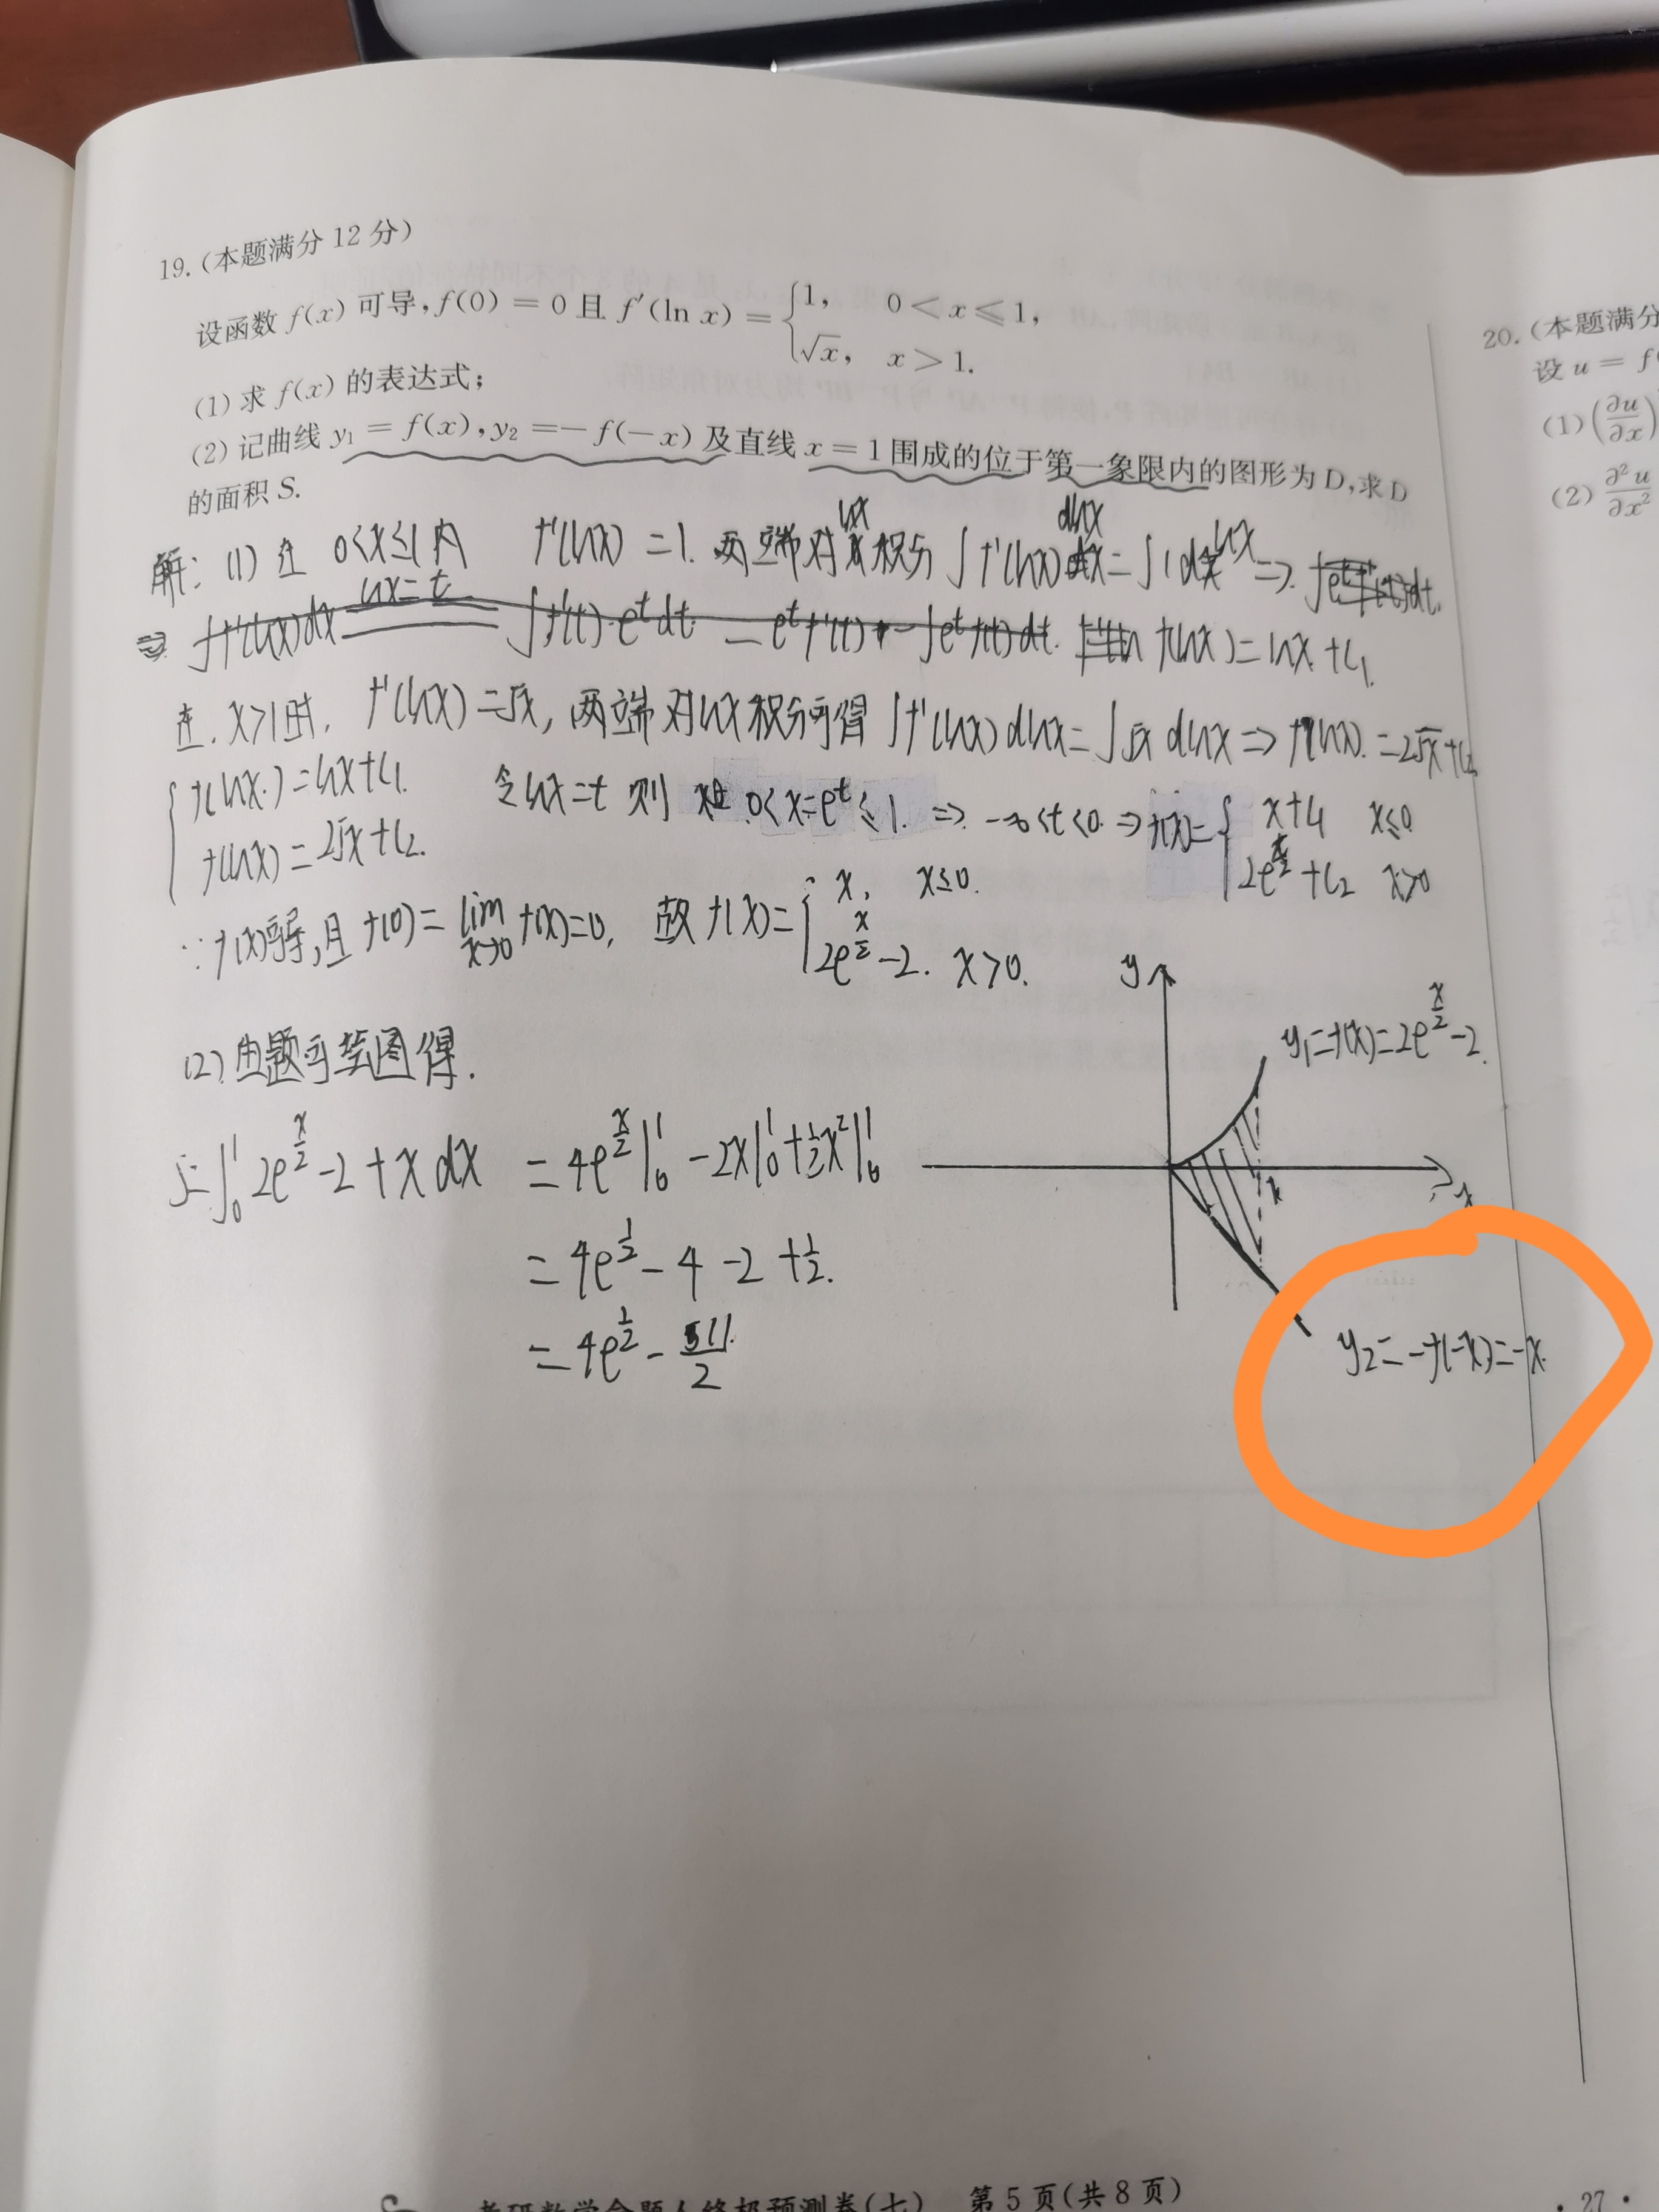 19.(本题满分 12 分)
设函数 f(x) 可导, f(0) = 0 且 f′(ln x) = {1, 0 < x ⩽ 1,
√x, x > 1.
(1) 求 f(x) 的表达式;
(2) 记曲线 y₁ = f(x), y₂ = − f(−x) 及直线 x = 1 围成的位于第一象限内的图形为 D, 求 D
的面积 S.
解: (1) 在 0<x≤1 内 f′(lnx) = 1. 两端对 lnx 积分 ∫f′(lnx) dlnx = ∫1 dlnx ⇒
⇒ ∫f′(lnx)dx lnx=t ∫f′(t)·e^t dt f(lnx) = lnx + C₁.
在 x>1时, f′(lnx) = √x, 两端对lnx积分可得 ∫f′(lnx) dlnx = ∫√x dlnx ⇒ f(lnx) = 2√x + C₂
{f(lnx) = lnx + C₁. 令 lnx = t 则 0< x=e^t ≤1. ⇒ -∞<t<0. ⇒ f(x) = {x+C₁ x≤0
f(lnx) = 2√x + C₂. 2e^{x/2} + C₂ x>0
∵ f(x)可导, 且 f(0) = lim_{x→0} f(x) = 0, 故 f(x) = {x, x≤0.
2e^{x/2} - 2. x>0.
(2) 由题可绘图得.
S = ∫₀¹ 2e^{x/2} - 2 + x dx = 4e^{x/2}|₀¹ - 2x|₀¹ + ½x²|₀¹
= 4e^{1/2} - 4 - 2 + ½.
= 4e^{1/2} - 11/2
y
y₁ = f(x) = 2e^{x/2} - 2.
x
y₂ = -f(-x) = -x.
20.(本题满分
设 u = f(
(1) (∂u/∂x)
(2) ∂²u/∂x²
考研数学命题人终极预测卷(七) 第 5 页(共 8 页)
· 27 ·